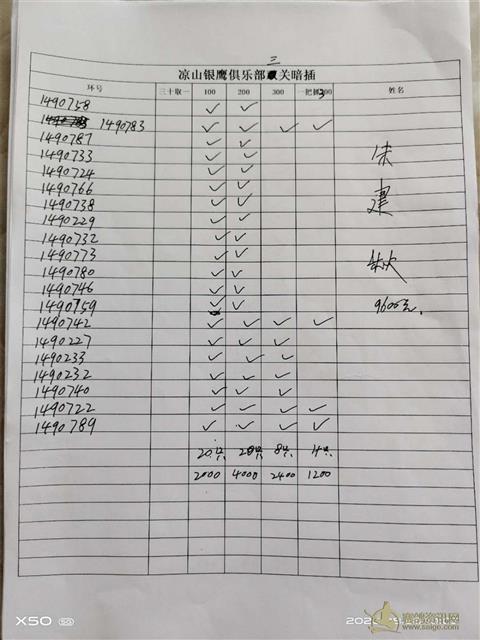 三
凉山银鹰俱乐部关暗插
环号 三十取一 100 200 300 一把抓300 姓名
1490758 ✓ ✓
1490783 ✓ ✓ ✓ ✓
1490787 ✓ ✓
1490733 ✓ ✓
1490724 ✓ ✓
1490766 ✓ ✓
1490738 ✓ ✓
1490229 ✓ ✓
1490732 ✓ ✓
1490773 ✓ ✓
1490780 ✓ ✓
1490746 ✓ ✓
1490759 ✓ ✓ 9600元.
1490742 ✓ ✓ ✓ ✓
1490227 ✓ ✓ ✓
1490233 ✓ ✓ ✓
1490232 ✓ ✓ ✓
1490740 ✓ ✓ ✓
1490722 ✓ ✓ ✓ ✓
1490789 ✓ ✓ ✓ ✓
20只 20只 8只 4只
2000 4000 2400 1200
X50 5G
www.saige.com